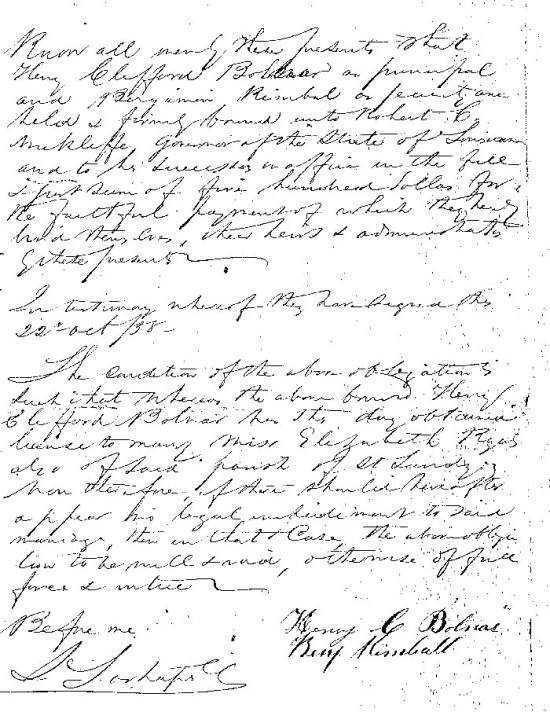 Know all men by these presents that
Henry Clifford Bolvar as principal
and Benjamin Kimbal as security are
held & firmly bound unto Robert C
Wickliffe, Governor of the State of Louisiana
and to his successor in office in the full
& just sum of five hundred dollars for
the faithful payment of which they hereby
bind themselves, their heirs & administrators
by these presents
In testimony whereof they have signed this
22d Oct /58 -
The condition of the above obligation is
such that whereas the above bound Henry
Clifford Bolvar has this day obtained
license to marry Miss Elizabeth
also of said parish of St Landry
Now therefore, if there should hereafter
appear no legal impediment to said
marriage, then in that Case, the above obliga
tion to be null & void, otherwise of full
force & virtue
Before me
Henry C Bolvar
Benj Kimball